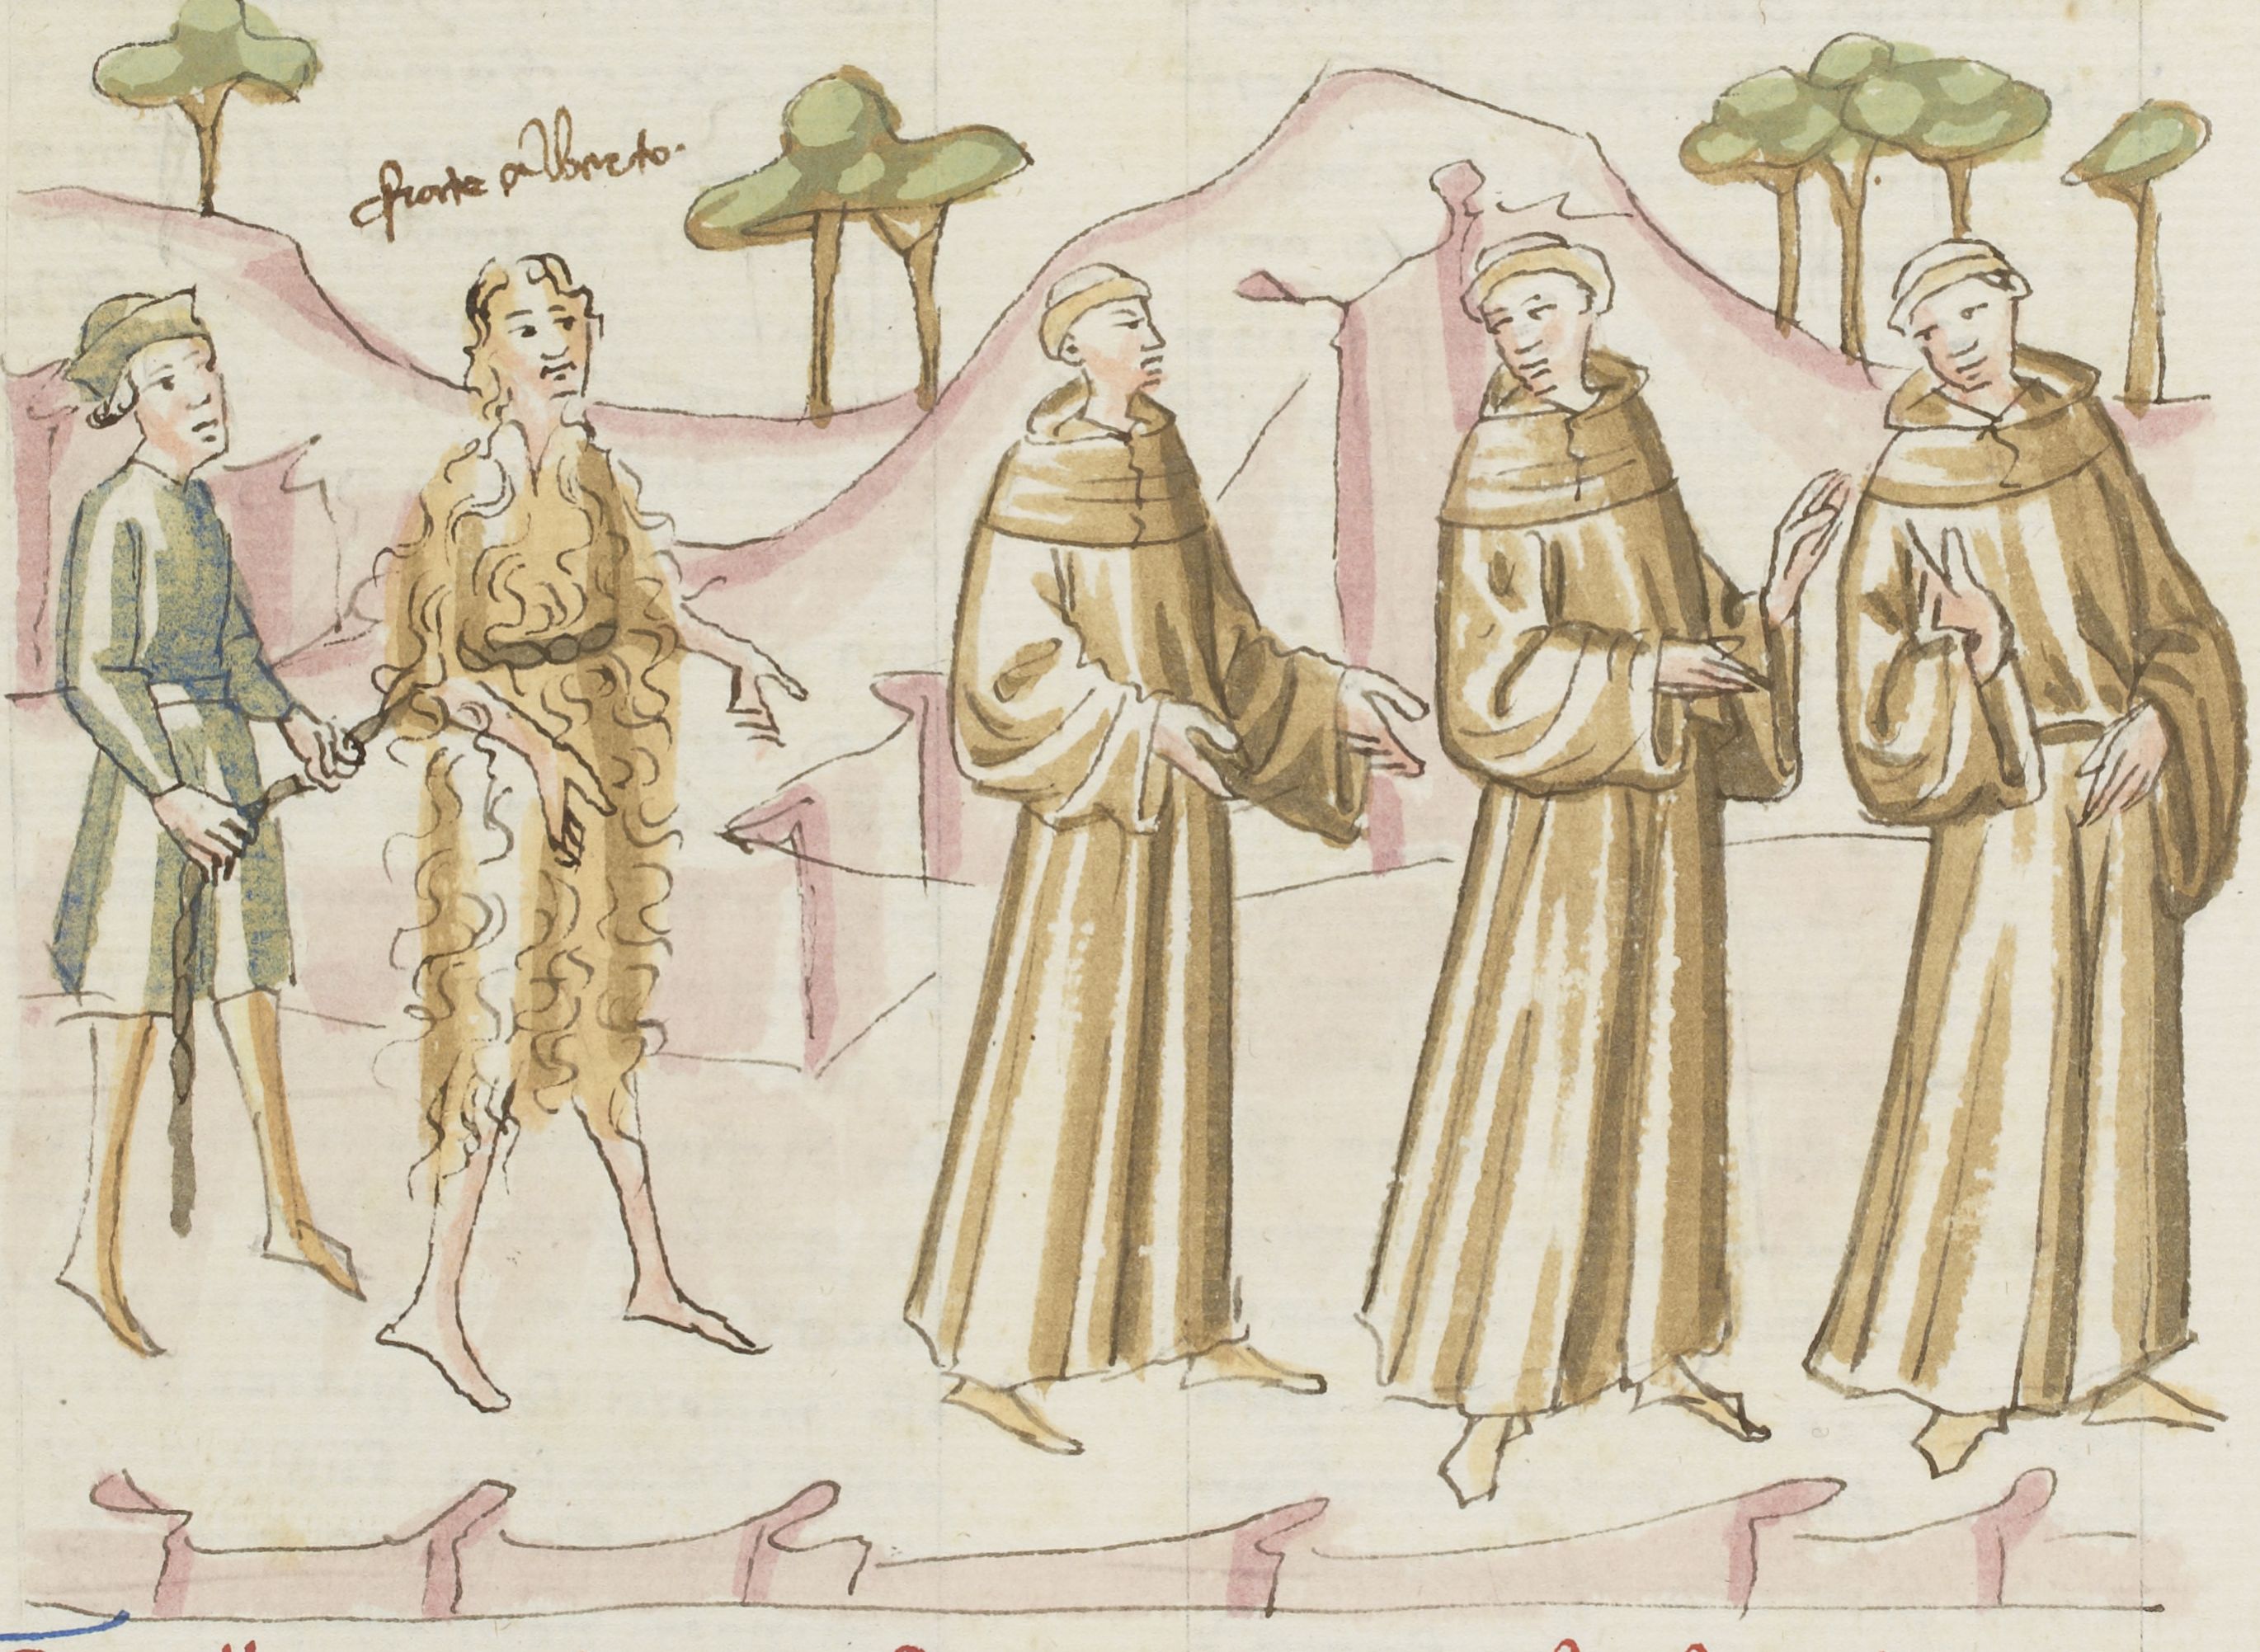 frate alberto